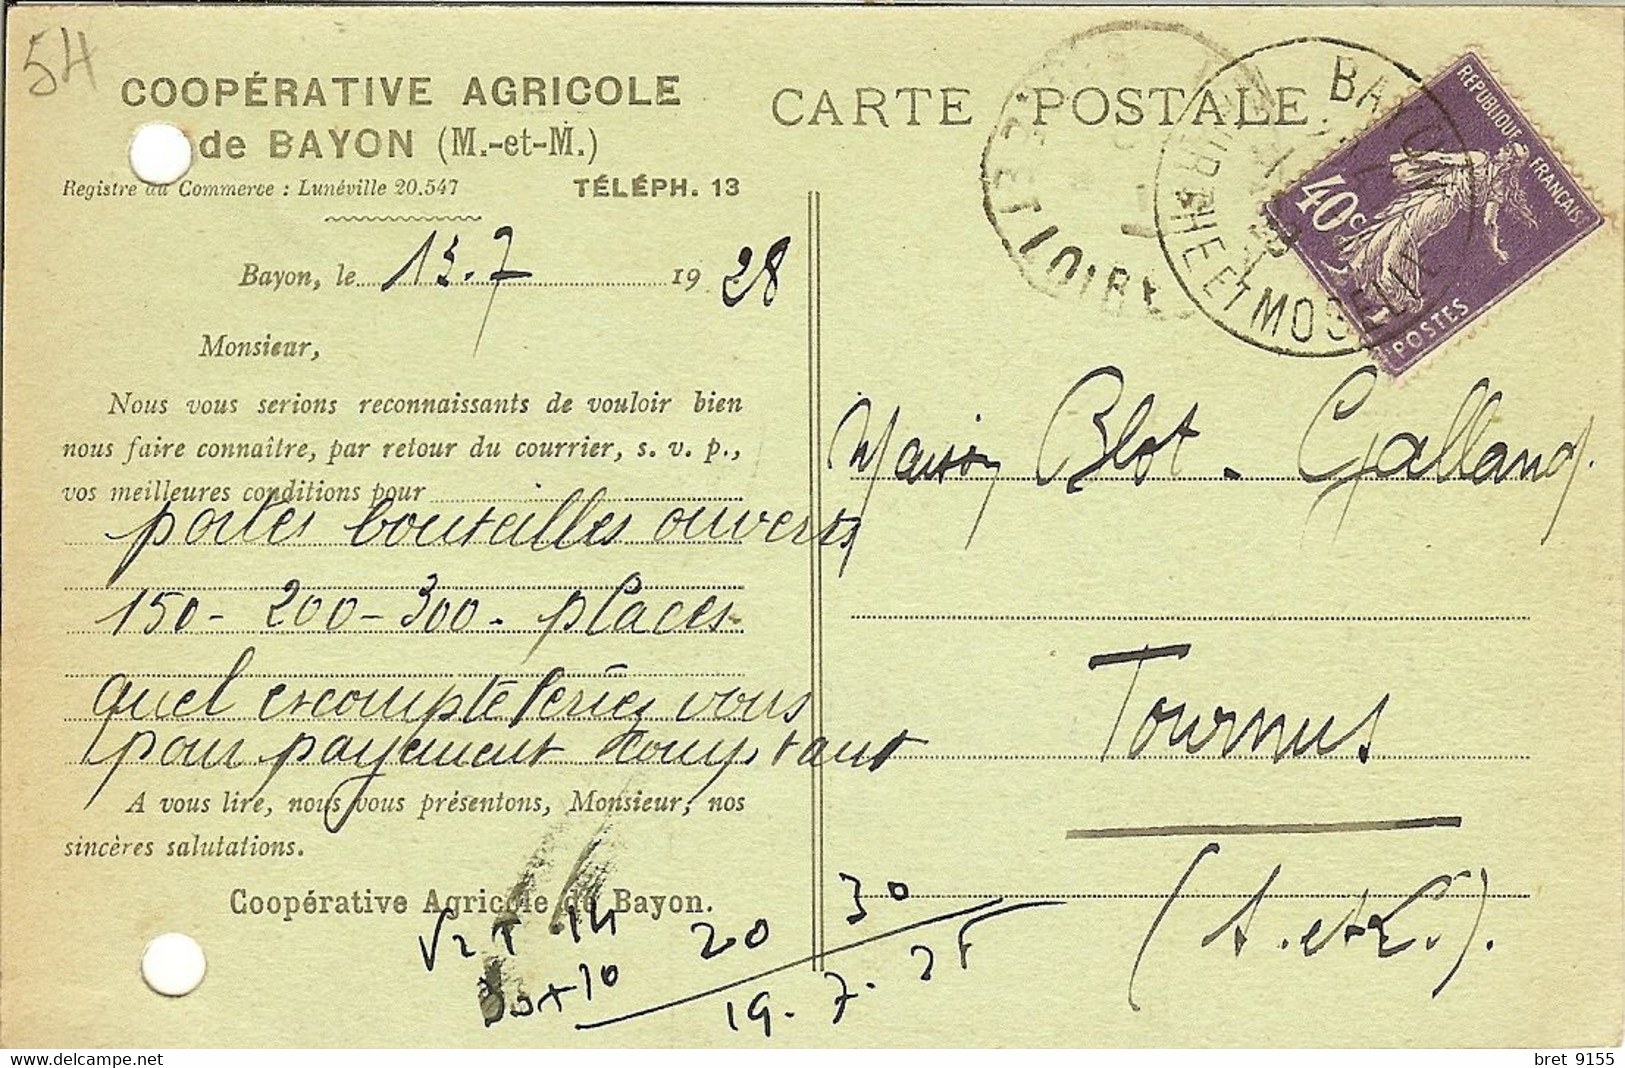 54
COOPÉRATIVE AGRICOLE
de BAYON (M.-et-M.)
Registre du Commerce : Lunéville 20.547 TÉLÉPH. 13
Bayon, le 13.7 1928
Monsieur,
Nous vous serions reconnaissants de vouloir bien
nous faire connaître, par retour du courrier, s. v. p.,
vos meilleures conditions pour
portes bouteilles ouverts
150 - 200 - 300 - places
quel escompte feriez vous
pour payement comptant
A vous lire, nous vous présentons, Monsieur, nos
sincères salutations.
Coopérative Agricole de Bayon.
14 20 30
+10
19.7.28
CARTE POSTALE
BAYON
MEURTHE ET MOSELLE
ET LOIRE
REPUBLIQUE FRANÇAISE
40c
POSTES
Maison Blot-Galland
Tournus
(S. et L.).
bret 9155